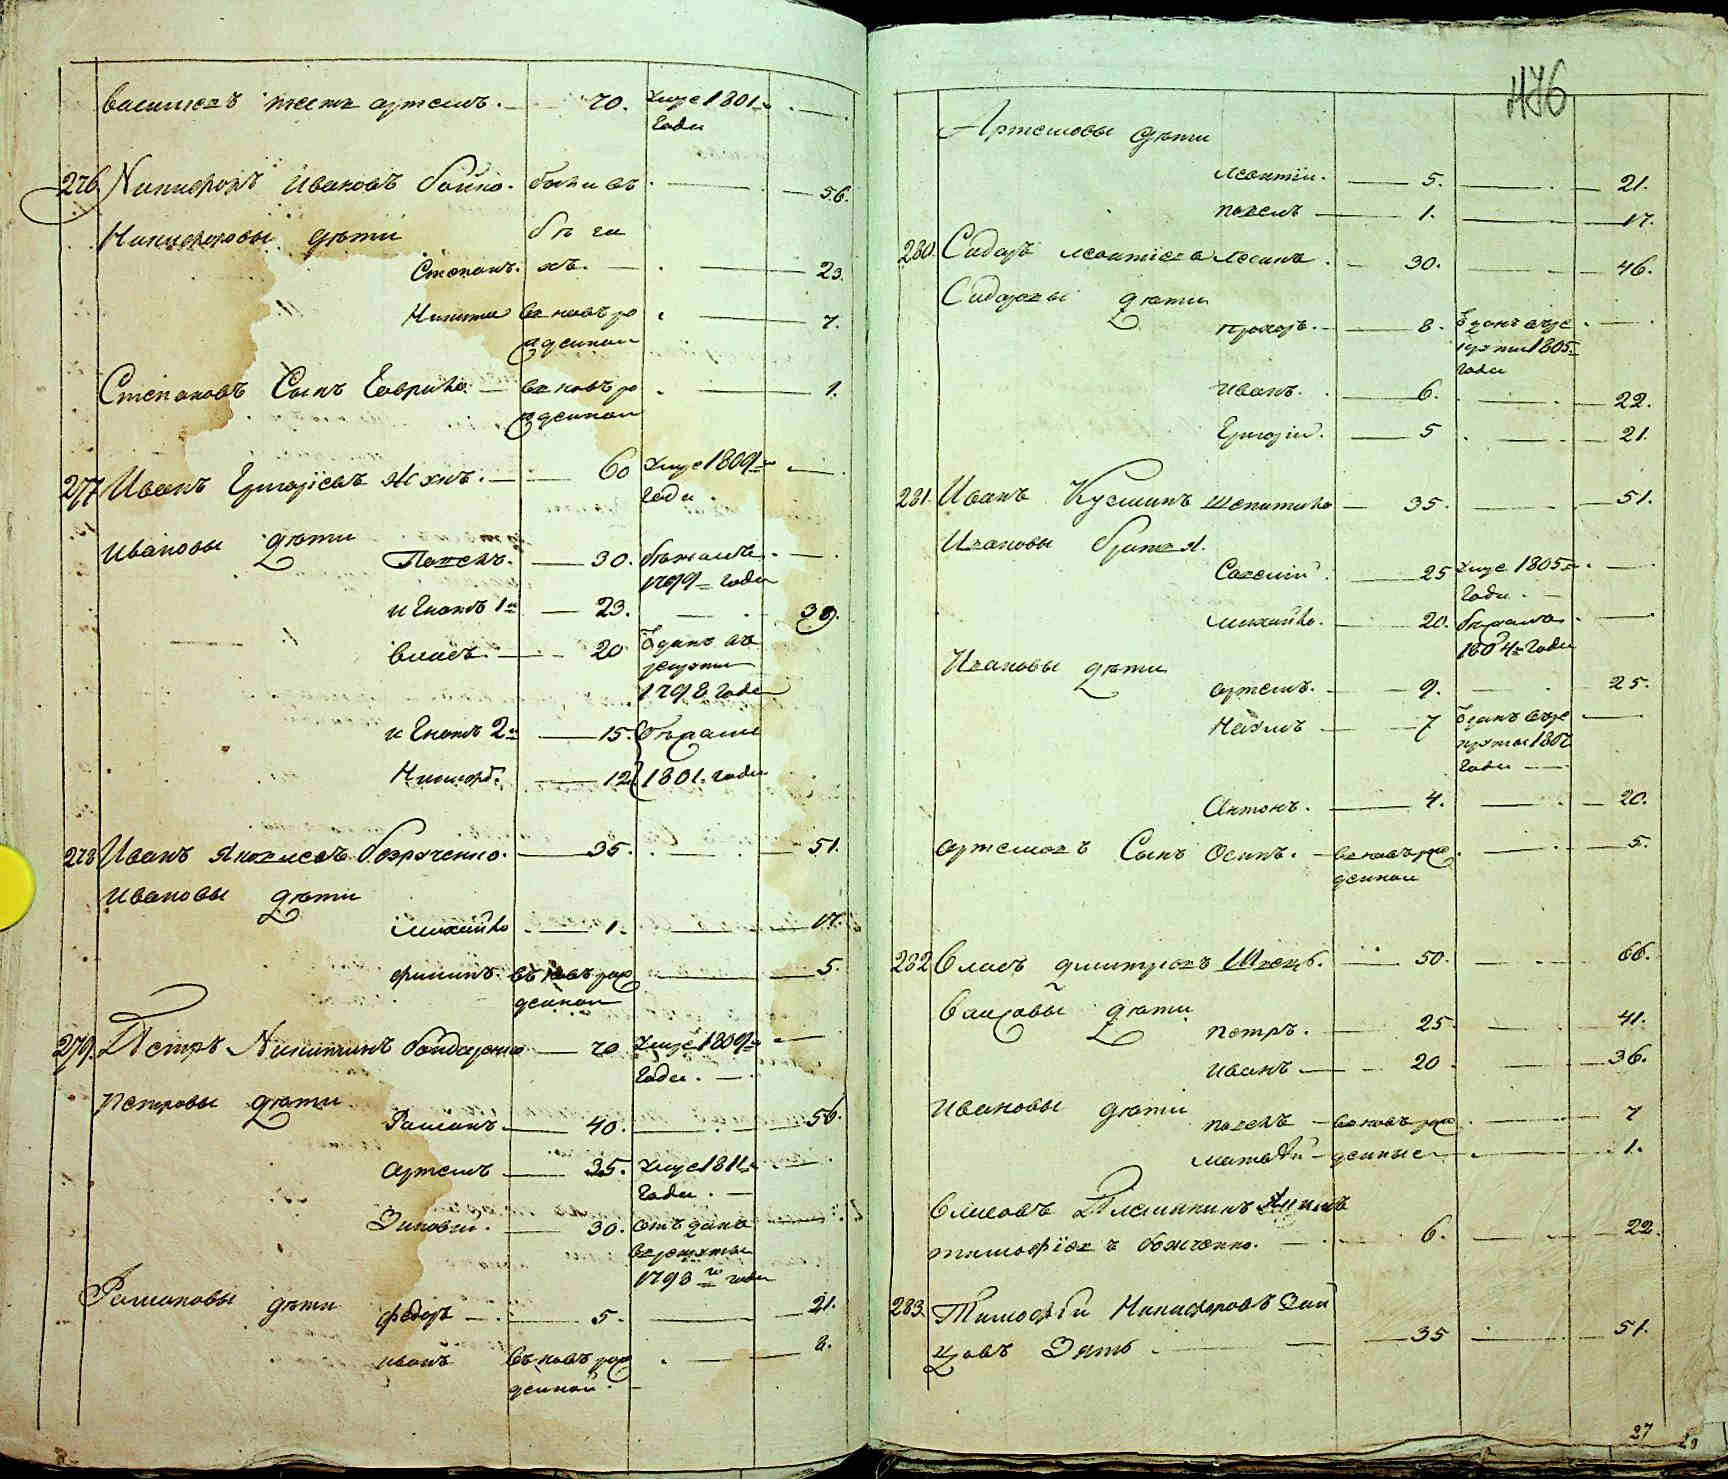 Васильевъ тесть артемъ. 70. Умре 1801го
Года
276 Никифоръ Ивановъ бойко. были въ 56.
Никифоровы дѣти бѣга
Степанъ. хъ. 23.
Никита вновь ро 7.
жденной
Степановъ Сынъ Гаврило вновь ро 1.
жденной
277 Иванъ Григоріевъ 60 Умре 1809го
Года.
Ивановы дѣти
Павелъ. 30. бѣжалъ
1799го Года
Игнатъ 1й 23. 39.
Власъ. 20 Отданъ въ
рекруты
1798 Года
Игнатъ 2й 15. бежали
Никифоръ. 12 1801. Года
278 Иванъ Яковлевъ 35. 51.
Ивановы дѣти
Михайло 1. 17.
Филипъ въ новь рож 5.
денной
279. Петръ Никитинъ бондаренко 70 Умре 1809го
Года.
Петровы дѣти
Романъ 40. 56.
Артемъ 35. Умре 1811го
Года.
Зиновій. 30. отъданъ
в рекруты
1793го года
Романовы дѣти Федоръ 5. 21.
Иванъ въ новь рож 8.
денной.
476
Артемовы дѣти
Леонтій. 5. 21.
Павелъ 1. 17.
280. Сидоръ Леонтіевъ 30. 46.
Сидоровы дѣти
Прохоръ. 8. Отданъ въ ре
круты 1805го
Года
Иванъ. 6. 22.
Григорій. 5 21.
281. Иванъ Кузминъ Шепитко 35. 51.
Ивановы братья.
Савелій. 25 Умре 1805го
Года.
Михайло. 20. бежалъ
1804го Года
Ивановы дѣти
Артемъ. 9. 25.
Наумъ 7 Отданъ въ ре
круты 180
Года
Антонъ. 4. 20.
Артемовъ Сынъ Осипъ. вновь рож 5.
денной
282 Власъ Дмитровъ Швецъ. 50. 66.
Власовы дѣти
Петръ. 25 41.
Иванъ 20 36.
Ивановы дѣти
Павелъ вновь рож 7
Матвѣй денные 1.
Власовъ Племянникъ
Тимофіевъ 6. 22.
283. Тимофѣй Никифоровъ Зай
цовъ Зять. 35 51.
27